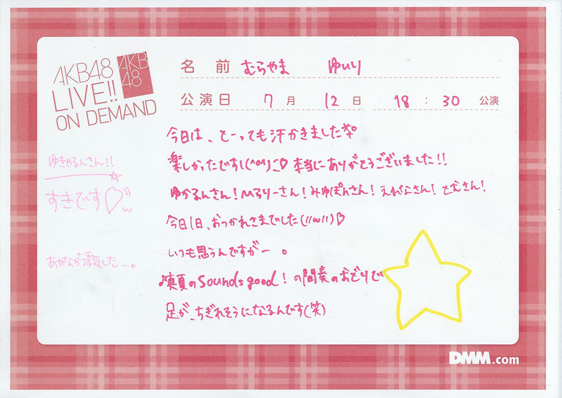 AKB48
LIVE!!
ON DEMAND
AKB
48
名 前 むらやま ゆいり
公演日 7 月 12 日 18 : 30 公演
今日は、とーっても汗かきました
楽しかったです!(^o^)♡本当にありがとうございました!!
ゆかるんさん!Mるりーさん!みゆぽんさん!えれなさん!となさん!
今日1日、おつかれさまでした(//w//)♡
いつも思うんですがー。
真夏のSounds good!の間奏のおどりで
足が、ちぎれそうになるんです(笑)
ゆきゃるんさん!!
すきです♡
あがながら
DMM.com